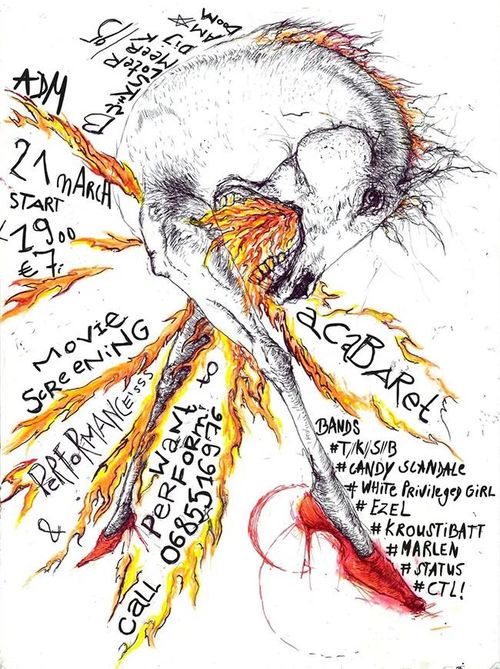 MEER
DIJK
AM
ADM
21 MARCH
START
19.00
€ 7,-
MOVIE
SCREENING
&
PERFORMANCE'SSS
CALL 0685516976
WANT to
PERFORM!
a CaBaRet
BANDS
#T/K/S//B
#CANDY SCANDALE
# WHITE PRIVILEGED GIRL
# EZEL
# KROUSTIBATT
# MARLEN
# STATUS
# CTL!